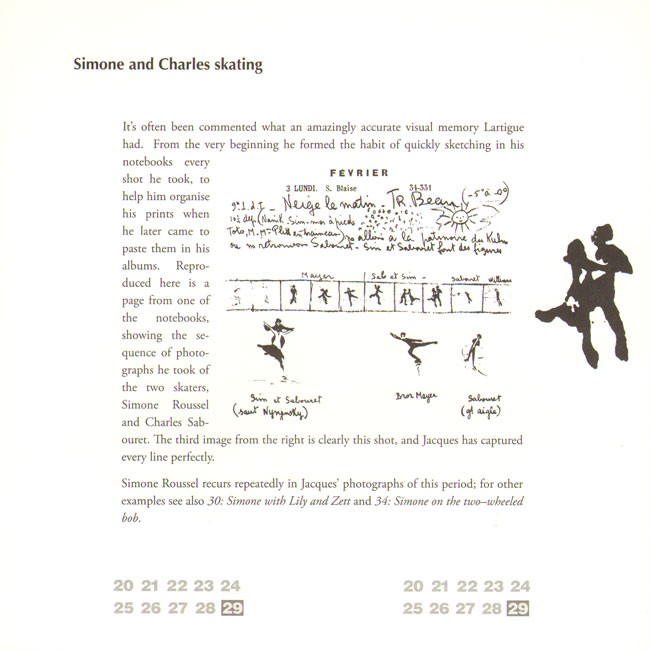 Simone and Charles skating
It's often been commented what an amazingly accurate visual memory Lartigue
had. From the very beginning he formed the habit of quickly sketching in his
notebooks every
shot he took, to
help him organise
his prints when
he later came to
paste them in his
albums. Repro-
duced here is a
page from one of
the notebooks,
showing the se-
quence of photo-
graphs he took of
the two skaters,
Simone Roussel
and Charles Sab-
ouret. The third image from the right is clearly this shot, and Jacques has captured
every line perfectly.
FÉVRIER
3 LUNDI. S. Blaise 34-331
Neige le matin - TR. Beau (-5° à 0°)
allons à la patinoire du Kulm
ou ns retrouvons Sabouret - Sim et Sabouret font des figures
Mayer Sab et Sim - Sabouret
Sim et Sabouret
(saut Nijinsky)
Bror Meyer
Sabouret
(gd aigle)
Simone Roussel recurs repeatedly in Jacques' photographs of this period; for other
examples see also 30: Simone with Lily and Zett and 34: Simone on the two–wheeled
bob.
20 21 22 23 24
25 26 27 28 29
20 21 22 23 24
25 26 27 28 29